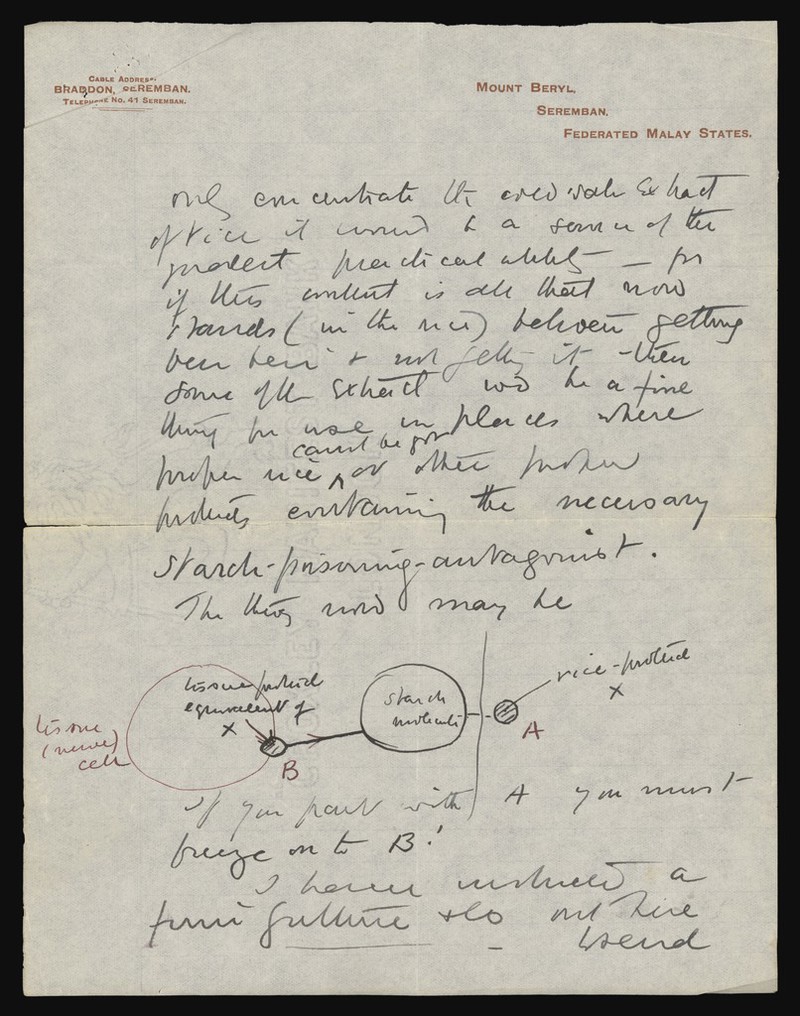 CABLE ADDRESS:
BRADDON, SEREMBAN.
TELEPHONE No. 41 SEREMBAN.
MOUNT BERYL,
SEREMBAN,
FEDERATED MALAY STATES.
only concentrate the cold water Extract
of rice it would be a source of the
greatest practical utility — for
if this content is all that now
stands (in the rice) between getting
beri beri & not getting it - then
some of the Extract wd be a fine
thing for use in places where
cannot be got
proper rice ^ or other proper
products containing the necessary
starch-poisoning-antagonist.
The thing now may be
tissue
(nerve)
cell
tissue proteid
equivalent of
X
B
starch
molecule
rice-proteid
X
A
If you part with A you must
freeze on to B!
I have instructed a
firm Guthrie & Co out here
to send